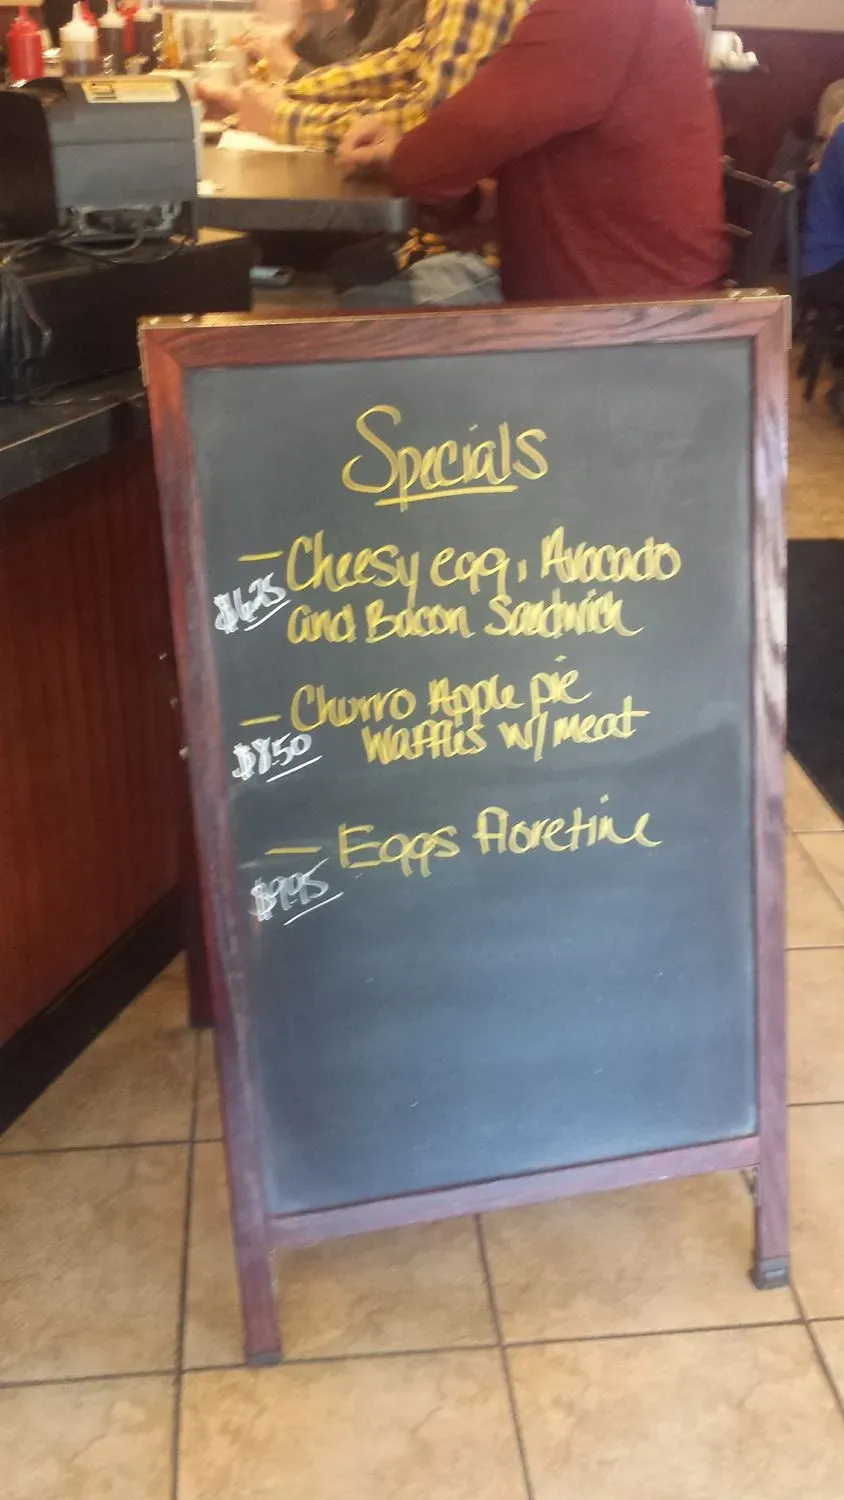 Specials
- Cheesy egg, Avocado
$6.25 and Bacon Sandwich
- Churro Apple pie
$8.50 Waffles w/ meat
- Eggs Floretine
$9.95